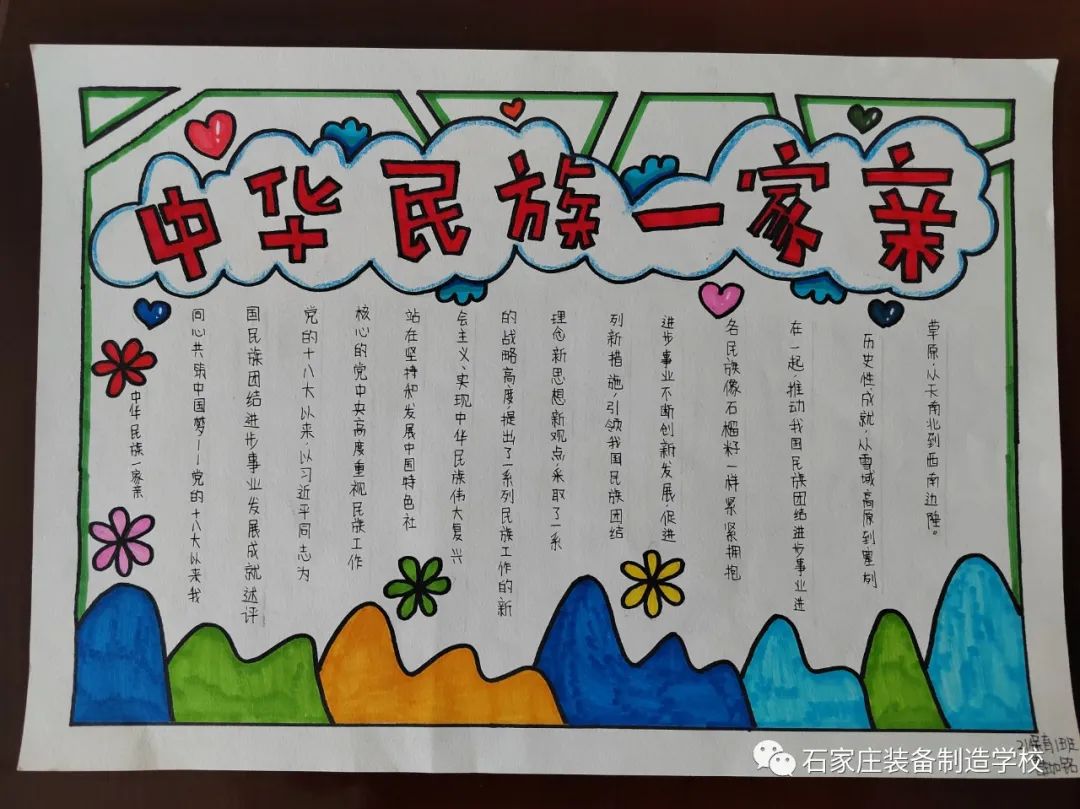 中华民族一家亲
中华民族一家亲
同心共筑中国梦——党的十八大以来我
国民族团结进步事业发展成就述评
党的十八大以来,以习近平同志为
核心的党中央高度重视民族工作
站在坚持和发展中国特色社
会主义、实现中华民族伟大复兴
的战略高度,提出了一系列民族工作的新
理念新思想新观点,采取了一系
列新措施,引领我国民族团结
进步事业不断创新发展,促进
各民族像石榴籽一样紧紧拥抱
在一起,推动我国民族团结进步事业进
历史性成就,从雪域高原到塞列
草原,从天南北到西南边陲。
石家庄装备制造学校